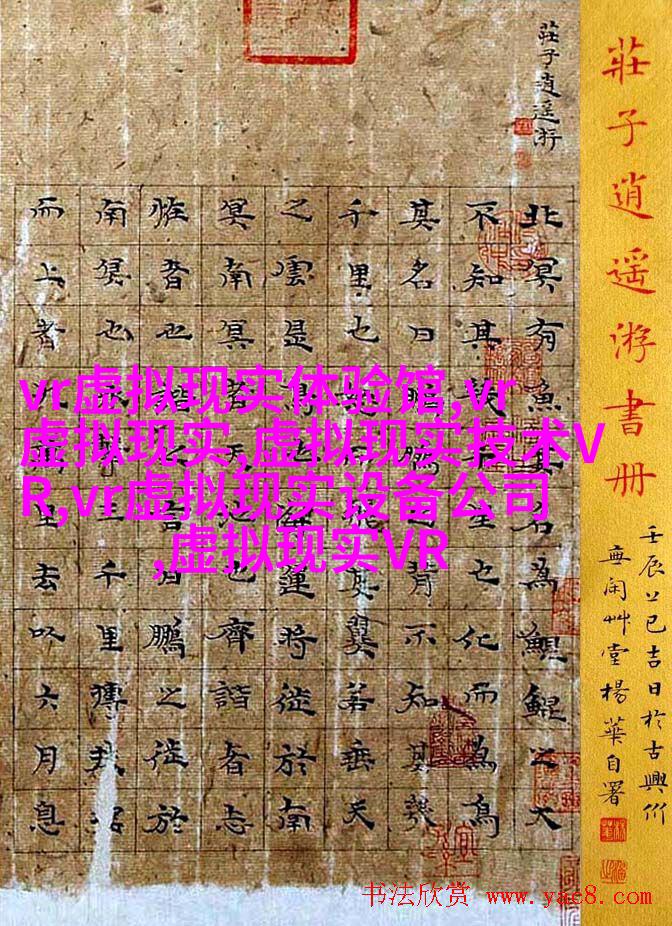 莊子逍遥游書册
壬辰上巳吉日於古興
閑艸堂楊華自署
莊子逍遥游
北冥有魚其名為鯤鯤之大
不知其幾千里也化而為鳥
其名曰鵬鵬之背不知其幾
千里也怒而飛其翼若垂天
之雲是鳥也海運將徙於南
冥南冥者天池也齊諧者志
怪者也諧之言曰鵬之徙於
南冥也水擊三千里摶扶搖
而上者九萬里去以六月息
vr虚拟现实体验馆,vr
虚拟现实,虚拟现实技术V
R,vr虚拟现实设备公司
,虚拟现实VR
书法欣赏 www.yac8.com